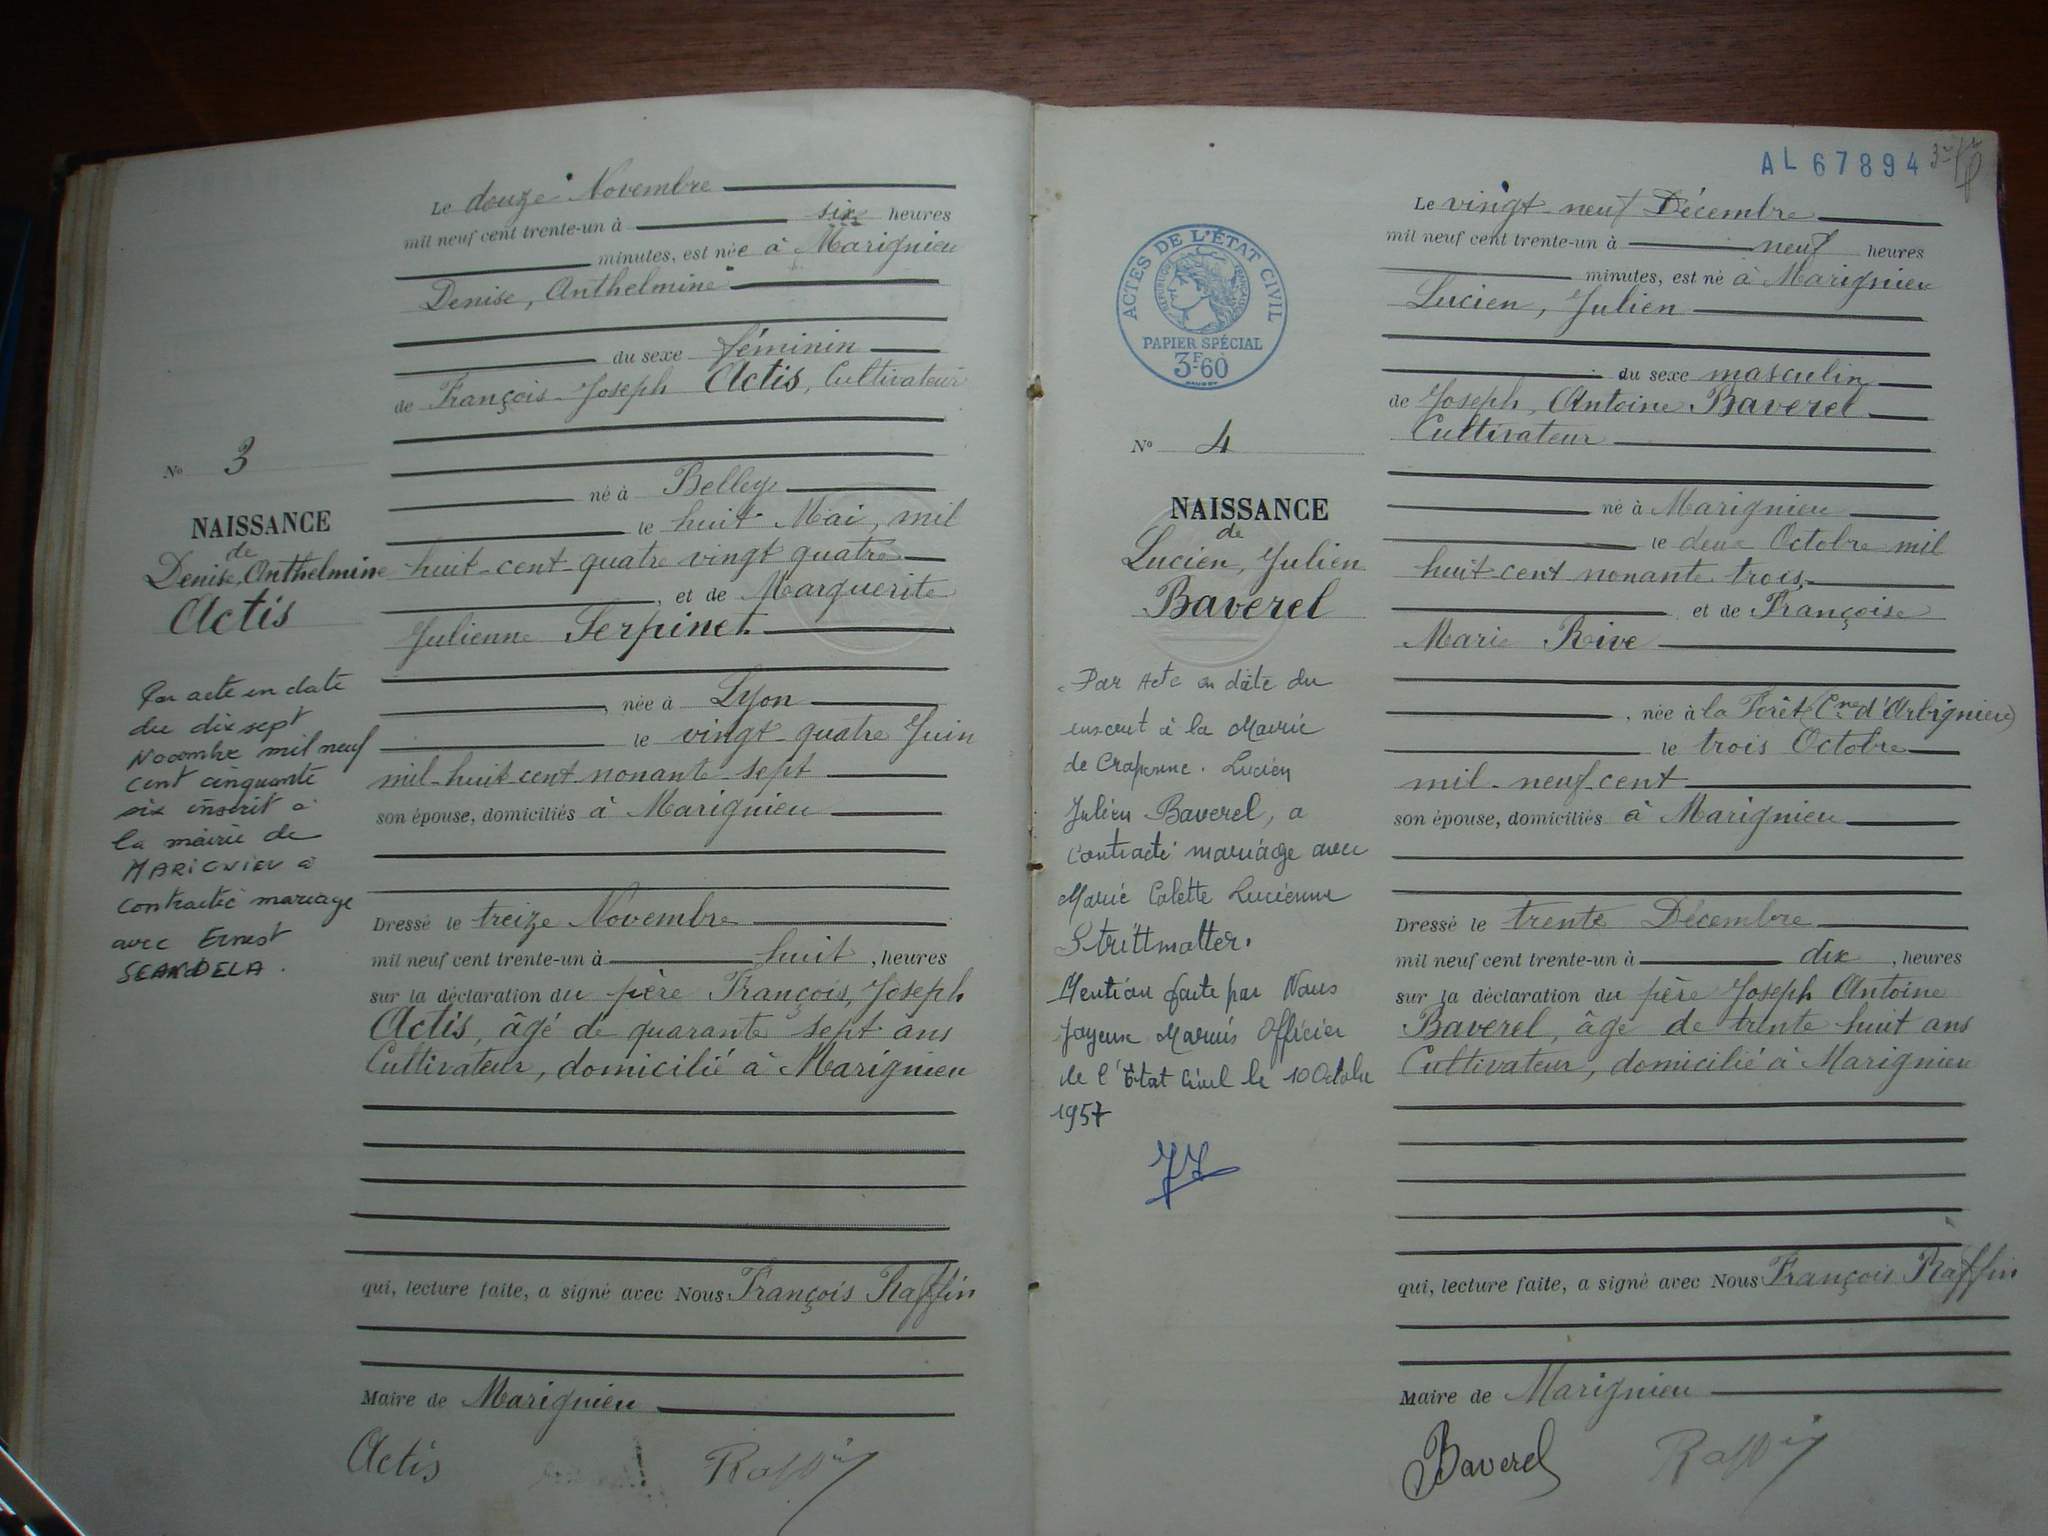 Le douze Novembre
mil neuf cent trente-un à six heures
minutes, est née à Marignieu
Denise, Anthelmine
du sexe féminin
de François Joseph Actis, Cultivateur
né à Belley
le huit Mai, mil
huit-cent-quatre vingt quatre
, et de Marguerite
Julienne Serpinet
, née à Lyon
le vingt-quatre Juin
mil-huit-cent-nonante-sept
son épouse, domiciliés à Marignieu
Dressé le treize Novembre
mil neuf cent trente-un à huit, heures
sur la déclaration du père François, Joseph
Actis, âgé de quarante sept ans
Cultivateur, domicilié à Marignieu
qui, lecture faite, a signé avec Nous François Raffin
Maire de Marignieu
Actis Raffin
No 3
NAISSANCE
de
Denise, Anthelmine
Actis
Par acte en date
du dix sept
Novembre mil neuf
cent cinquante
six inscrit à
la mairie de
MARIGNIEU a
contracté mariage
avec Ernest
SCANDELA.
AL 67894
ACTES DE L'ÉTAT CIVIL
RÉPUBLIQUE FRANÇAISE
PAPIER SPÉCIAL
3F.60
No 4
NAISSANCE
de
Lucien, Julien
Baverel
Par Acte en date du
inscrit à la Mairie
de Craponne. Lucien
Julien Baverel, a
contracté mariage avec
Marie Colette Lucienne
Strittmatter.
Mention faite par Nous
Joyeux Marius Officier
de l'État Civil le 10 Octobre
1957
Le vingt-neuf Décembre
mil neuf cent trente-un à neuf heures
minutes, est né à Marignieu
Lucien, Julien
du sexe masculin
de Joseph, Antoine Baverel
Cultivateur
né à Marignieu
le deux Octobre mil
huit-cent nonante-trois
et de Françoise
Marie Rive
, née à la Forêt (Cne d'Arbignieu)
le trois Octobre
mil-neuf-cent
son épouse, domiciliés à Marignieu
Dressé le trente Décembre
mil neuf cent trente-un à dix, heures
sur la déclaration du père Joseph Antoine
Baverel, âgé de trente-huit ans
Cultivateur, domicilié à Marignieu
qui, lecture faite, a signé avec Nous François Raffin
Maire de Marignieu
Baverel Raffin